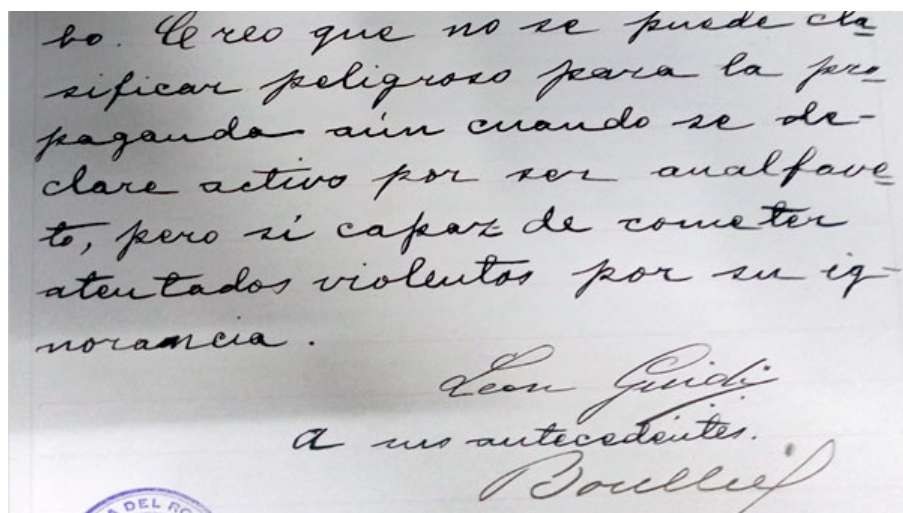 bo. Creo que no se puede cla
sificar peligroso para la pro
paganda aún cuando se de-
clare activo por ser analfave
to, pero sí capaz de cometer
atentados violentos por su ig-
norancia.
Leon Guidi
A sus antecedentes.
DEL RO